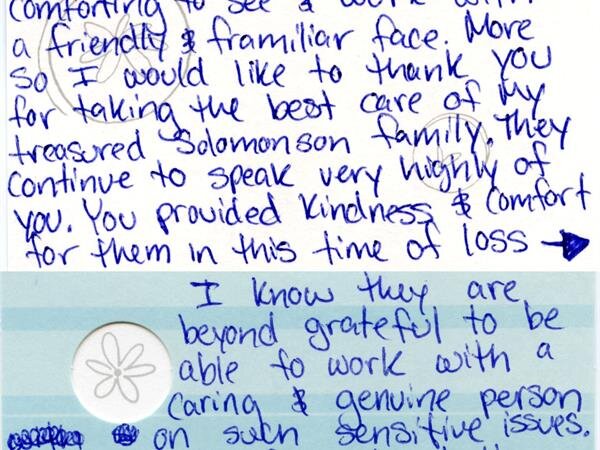 comforting to see & work with
a friendly & framiliar face. More
so I would like to thank you
for taking the best care of my
treasured Solomonson family. They
continue to speak very highly of
you. You provided kindness & comfort
for them in this time of loss
I know they are
beyond grateful to be
able to work with a
caring & genuine person
on such sensitive issues.